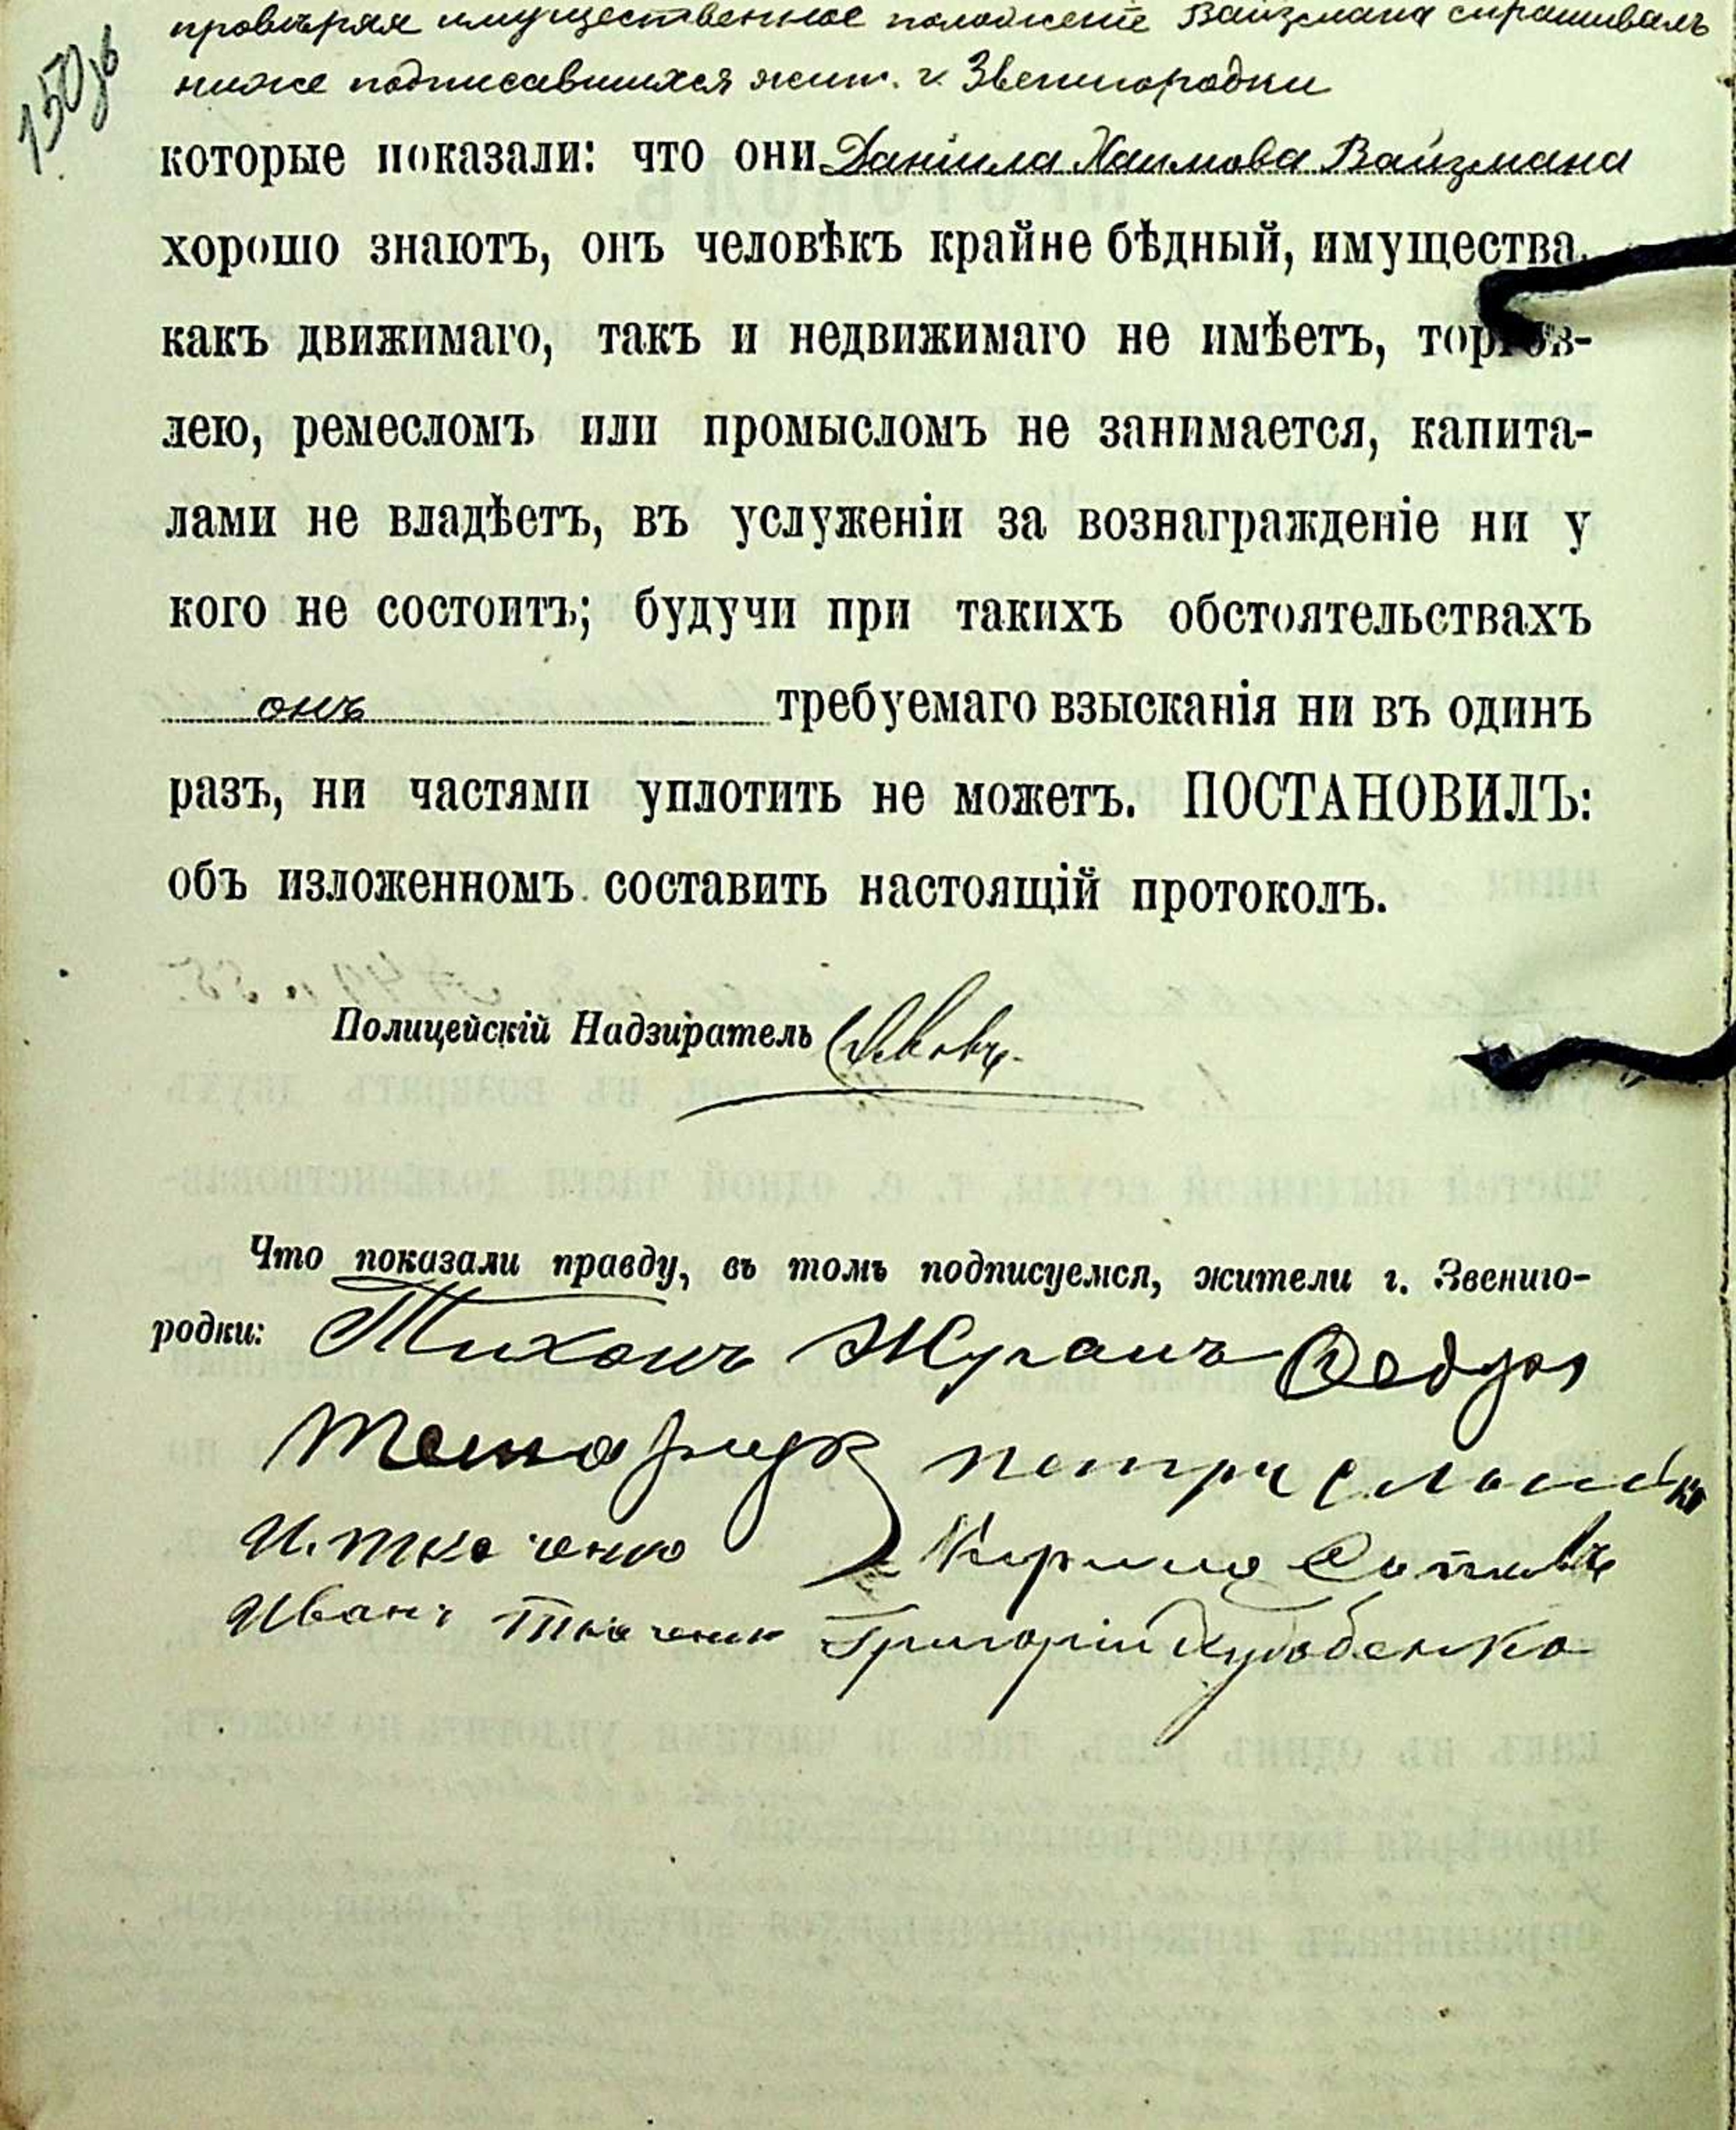 150об
провѣряя имущественное положеніе Вайзмана спрашивалъ
ниже подписавшихся жит. г. Звенигородки
которые показали: что они Даніила Хаимова Вайзмана
хорошо знаютъ, онъ человѣкъ крайне бѣдный, имущества,
какъ движимаго, такъ и недвижимаго не имѣетъ, торгов-
лею, ремесломъ или промысломъ не занимается, капита-
лами не владѣетъ, въ услуженіи за вознагражденіе ни у
кого не состоитъ; будучи при такихъ обстоятельствахъ
онъ требуемаго взысканія ни въ одинъ
разъ, ни частями уплотить не можетъ. ПОСТАНОВИЛЪ:
объ изложенномъ составить настоящій протоколъ.
Полицейскій Надзиратель
Что показали правду, въ томъ подписуемся, жители г. Звениго-
родки: Тихонъ Журанъ
Петръ
И. Ткаченко Кирило
Иванъ Григорій